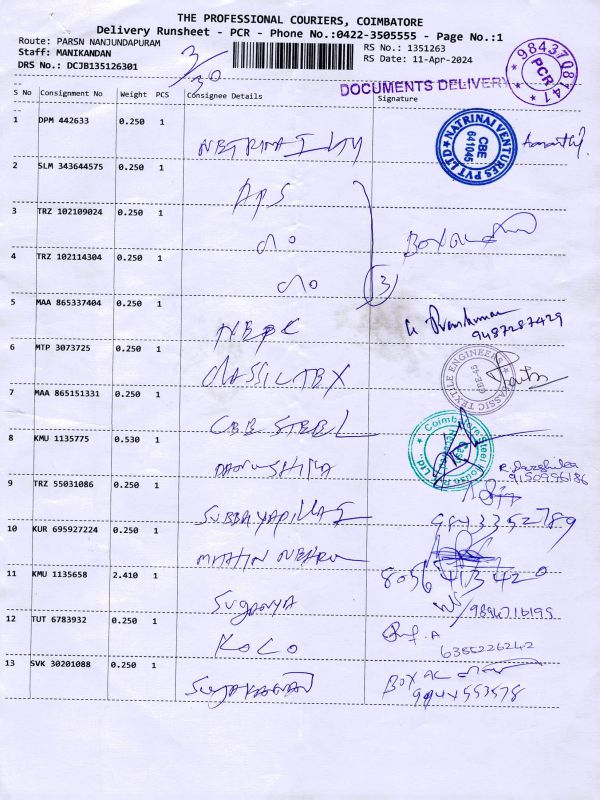 THE PROFESSIONAL COURIERS, COIMBATORE
Delivery Runsheet - PCR - Phone No.:0422-3505555 - Page No.:1
Route: PARSN NANJUNDAPURAM
RS No.: 1351263
Staff: MANIKANDAN
RS Date: 11-Apr-2024
DRS No.: DCJB135126301
3/30
DOCUMENTS DELIVERY
9843708141
PCR
S No Consignment No Weight PCS Consignee Details Signature
1 DPM 442633 0.250 1
NATRINAI VENTURES PVT LTD
CBE
641045
2 SLM 343644575 0.250 1
APS
3 TRZ 102109024 0.250 1
4 TRZ 102114304 0.250 1
(3)
5 MAA 865337404 0.250 1
9487287429
6 MTP 3073725 0.250 1
CLASSIC TEX
CLASSIC TEXTILE ENGINEERS
CBE-45
7 MAA 865151331 0.250 1
CBE STEEL
Coimbatore Steel House
8 KMU 1135775 0.530 1
9150996186
9 TRZ 55031086 0.250 1
SUBBAYAPILLAI
9843352789
10 KUR 695927224 0.250 1
8056413420
11 KMU 1135658 2.410 1
Suganya
9894716195
12 TUT 6783932 0.250 1
KOCO
6385226242
13 SVK 30201088 0.250 1
9944553578